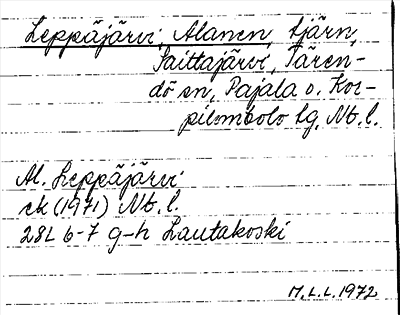 Leppäjärvi, Alanen, tjärn,
Saittajärvi, Tären-
dö sn, Pajala o. Kor-
pilombolo tg, Nb. l.
Al. Leppäjärvi
ek (1971) Nb. l.
28L 6-7 g-h Lautakoski
M.L.L. 1972